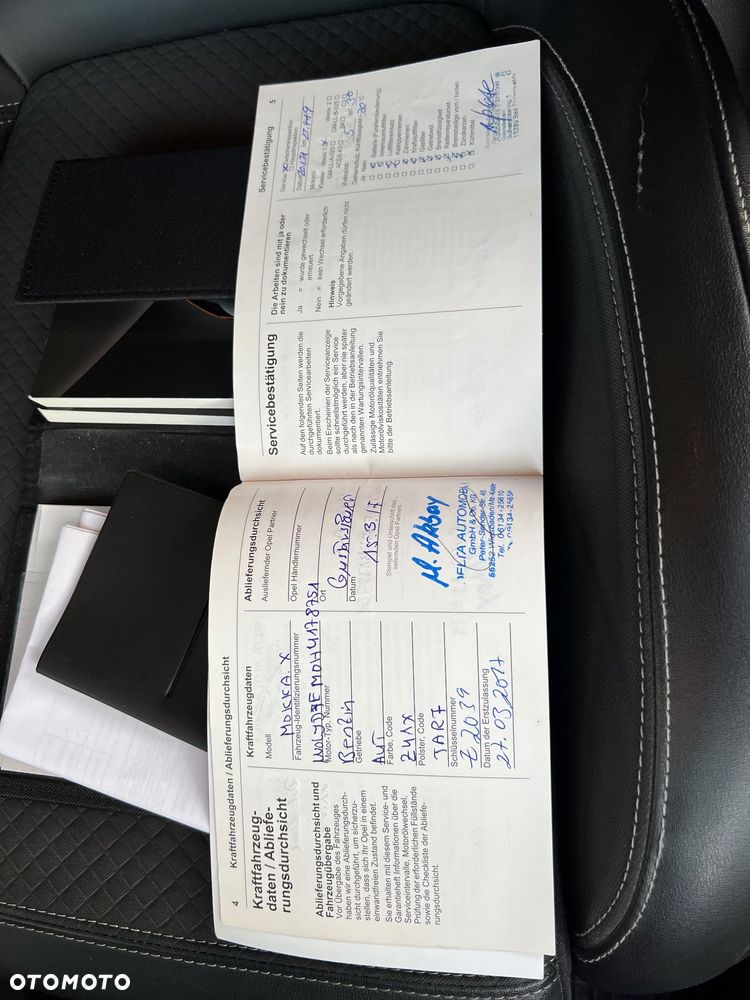 4 Kraftfahrzeugdaten / Ablieferungsdurchsicht
Kraftfahrzeug-
daten / Abliefe-
rungsdurchsicht
Ablieferungsdurchsicht und
Fahrzeugübergabe
Vor Übergabe des Fahrzeuges
haben wir eine Ablieferungsdurch-
sicht durchgeführt, um sicherzu-
stellen, dass sich Ihr Opel in einem
einwandfreien Zustand befindet.
Sie erhalten mit diesem Service- und
Garantieheft Informationen über die
Serviceintervalle, Motorölwechsel,
Prüfung der erforderlichen Füllstände
sowie die Checkliste der Abliefe-
rungsdurchsicht.
Kraftfahrzeugdaten
Modell
MOKKA X
Fahrzeug-Identifizierungsnummer
Motor-Typ, Nummer
Benzin
Getriebe
AUT
Farbe, Code
Polster, Code
TART
Schlüsselnummer
Z2039
Datum der Erstzulassung
27.03.2017
Ablieferungsdurchsicht
Ausliefernder Opel Partner
Opel Händlernummer
Ort
Datum
15.3.17
Stempel und Unterschrift des
liefernden Opel Partners
M. Akbay
GmbH & Co. KG
Peter-Sander-Str. 45
Tel. 06134-25810
Servicebestätigung 5
Servicebestätigung
Auf den folgenden Seiten werden die
durchgeführten Servicearbeiten
dokumentiert.
Beim Erscheinen der Serviceanzeige
sollte schnellstmöglich ein Service
durchgeführt werden, aber nie später
als nach den in der Betriebsanleitung
genannten Wartungsintervallen.
Zulässige Motorölqualitäten und
Motorölviskositäten entnehmen Sie
bitte der Betriebsanleitung.
Die Arbeiten sind mit ja oder
nein zu dokumentieren
Ja = wurde gewechselt oder
erneuert
Nein = kein Wechsel erforderlich
Hinweis
Vorgegebene Angaben dürfen nicht
geändert werden.
Service
Datum km
Motoröl
Viskosität
Ja Nein
Batterie (Funkfernbedienung)
Innenraumluftfilter
Luftfiltereinsatz
Keilrippenriemen
Zahnriemen
Kraftstofffilter
Gasfilter
Getriebeöl
Bremsflüssigkeit
Reifenreparaturset
Bremsbeläge vorn / hinten
Zündkerzen
Kühlmittel
OTOMOTO